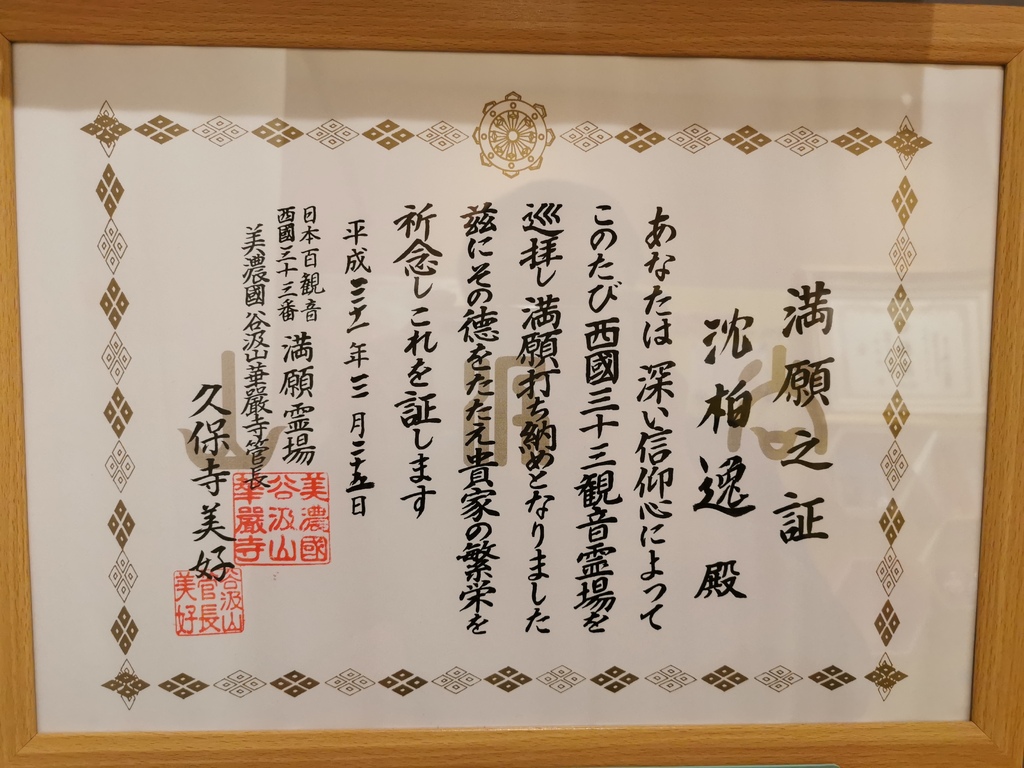 満願之証
沈柏逸 殿
あなたは 深い信仰心によって
このたび 西國三十三観音霊場を
巡拝し 満願打ち納めとなりました
玆にその徳をたたえ貴家の繁栄を
祈念しこれを証します
平成三十一年三月二十五日
日本百観音
西國三十三番
満願霊場
美濃國谷汲山華嚴寺管長
久保寺美好
美濃國
谷汲山
華嚴寺
谷汲山
管長
美好